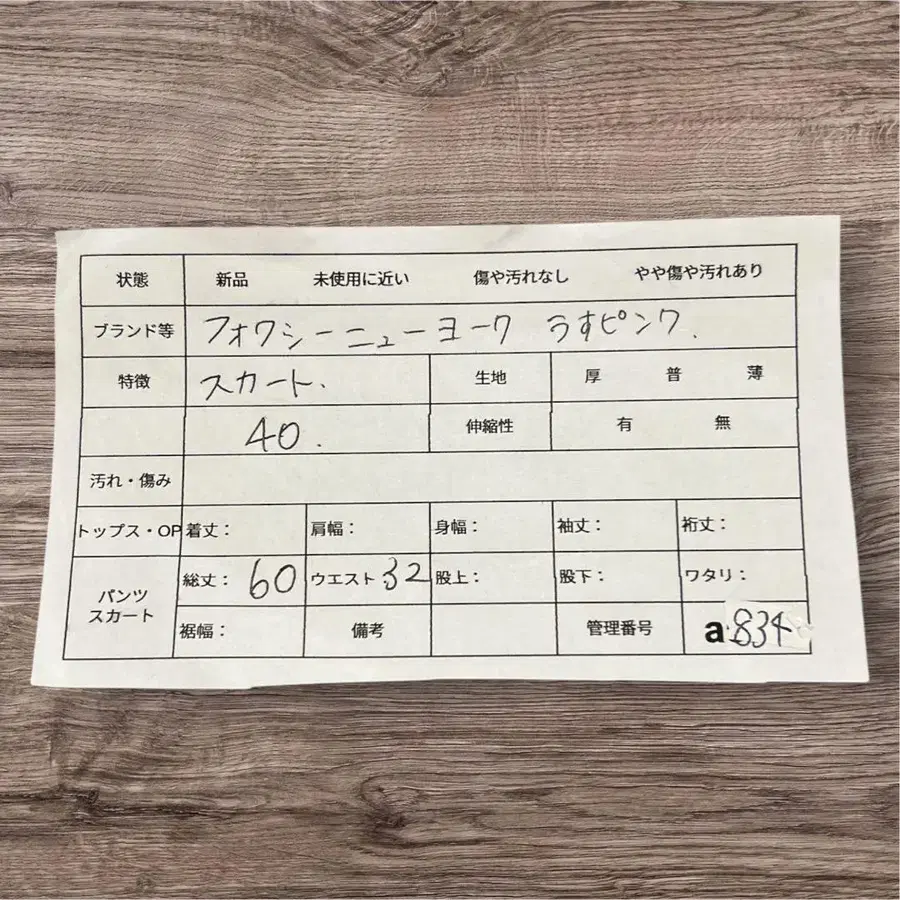 状態 新品 未使用に近い 傷や汚れなし やや傷や汚れあり
ブランド等 フォワシーニューヨーク うすピンク.
特徴 スカート. 生地 厚 普 薄
40. 伸縮性 有 無
汚れ・傷み
トップス・OP 着丈: 肩幅: 身幅: 袖丈: 裄丈:
パンツ スカート 総丈: 60 ウエスト: 32 股上: 股下: ワタリ:
裾幅: 備考 管理番号 a 834